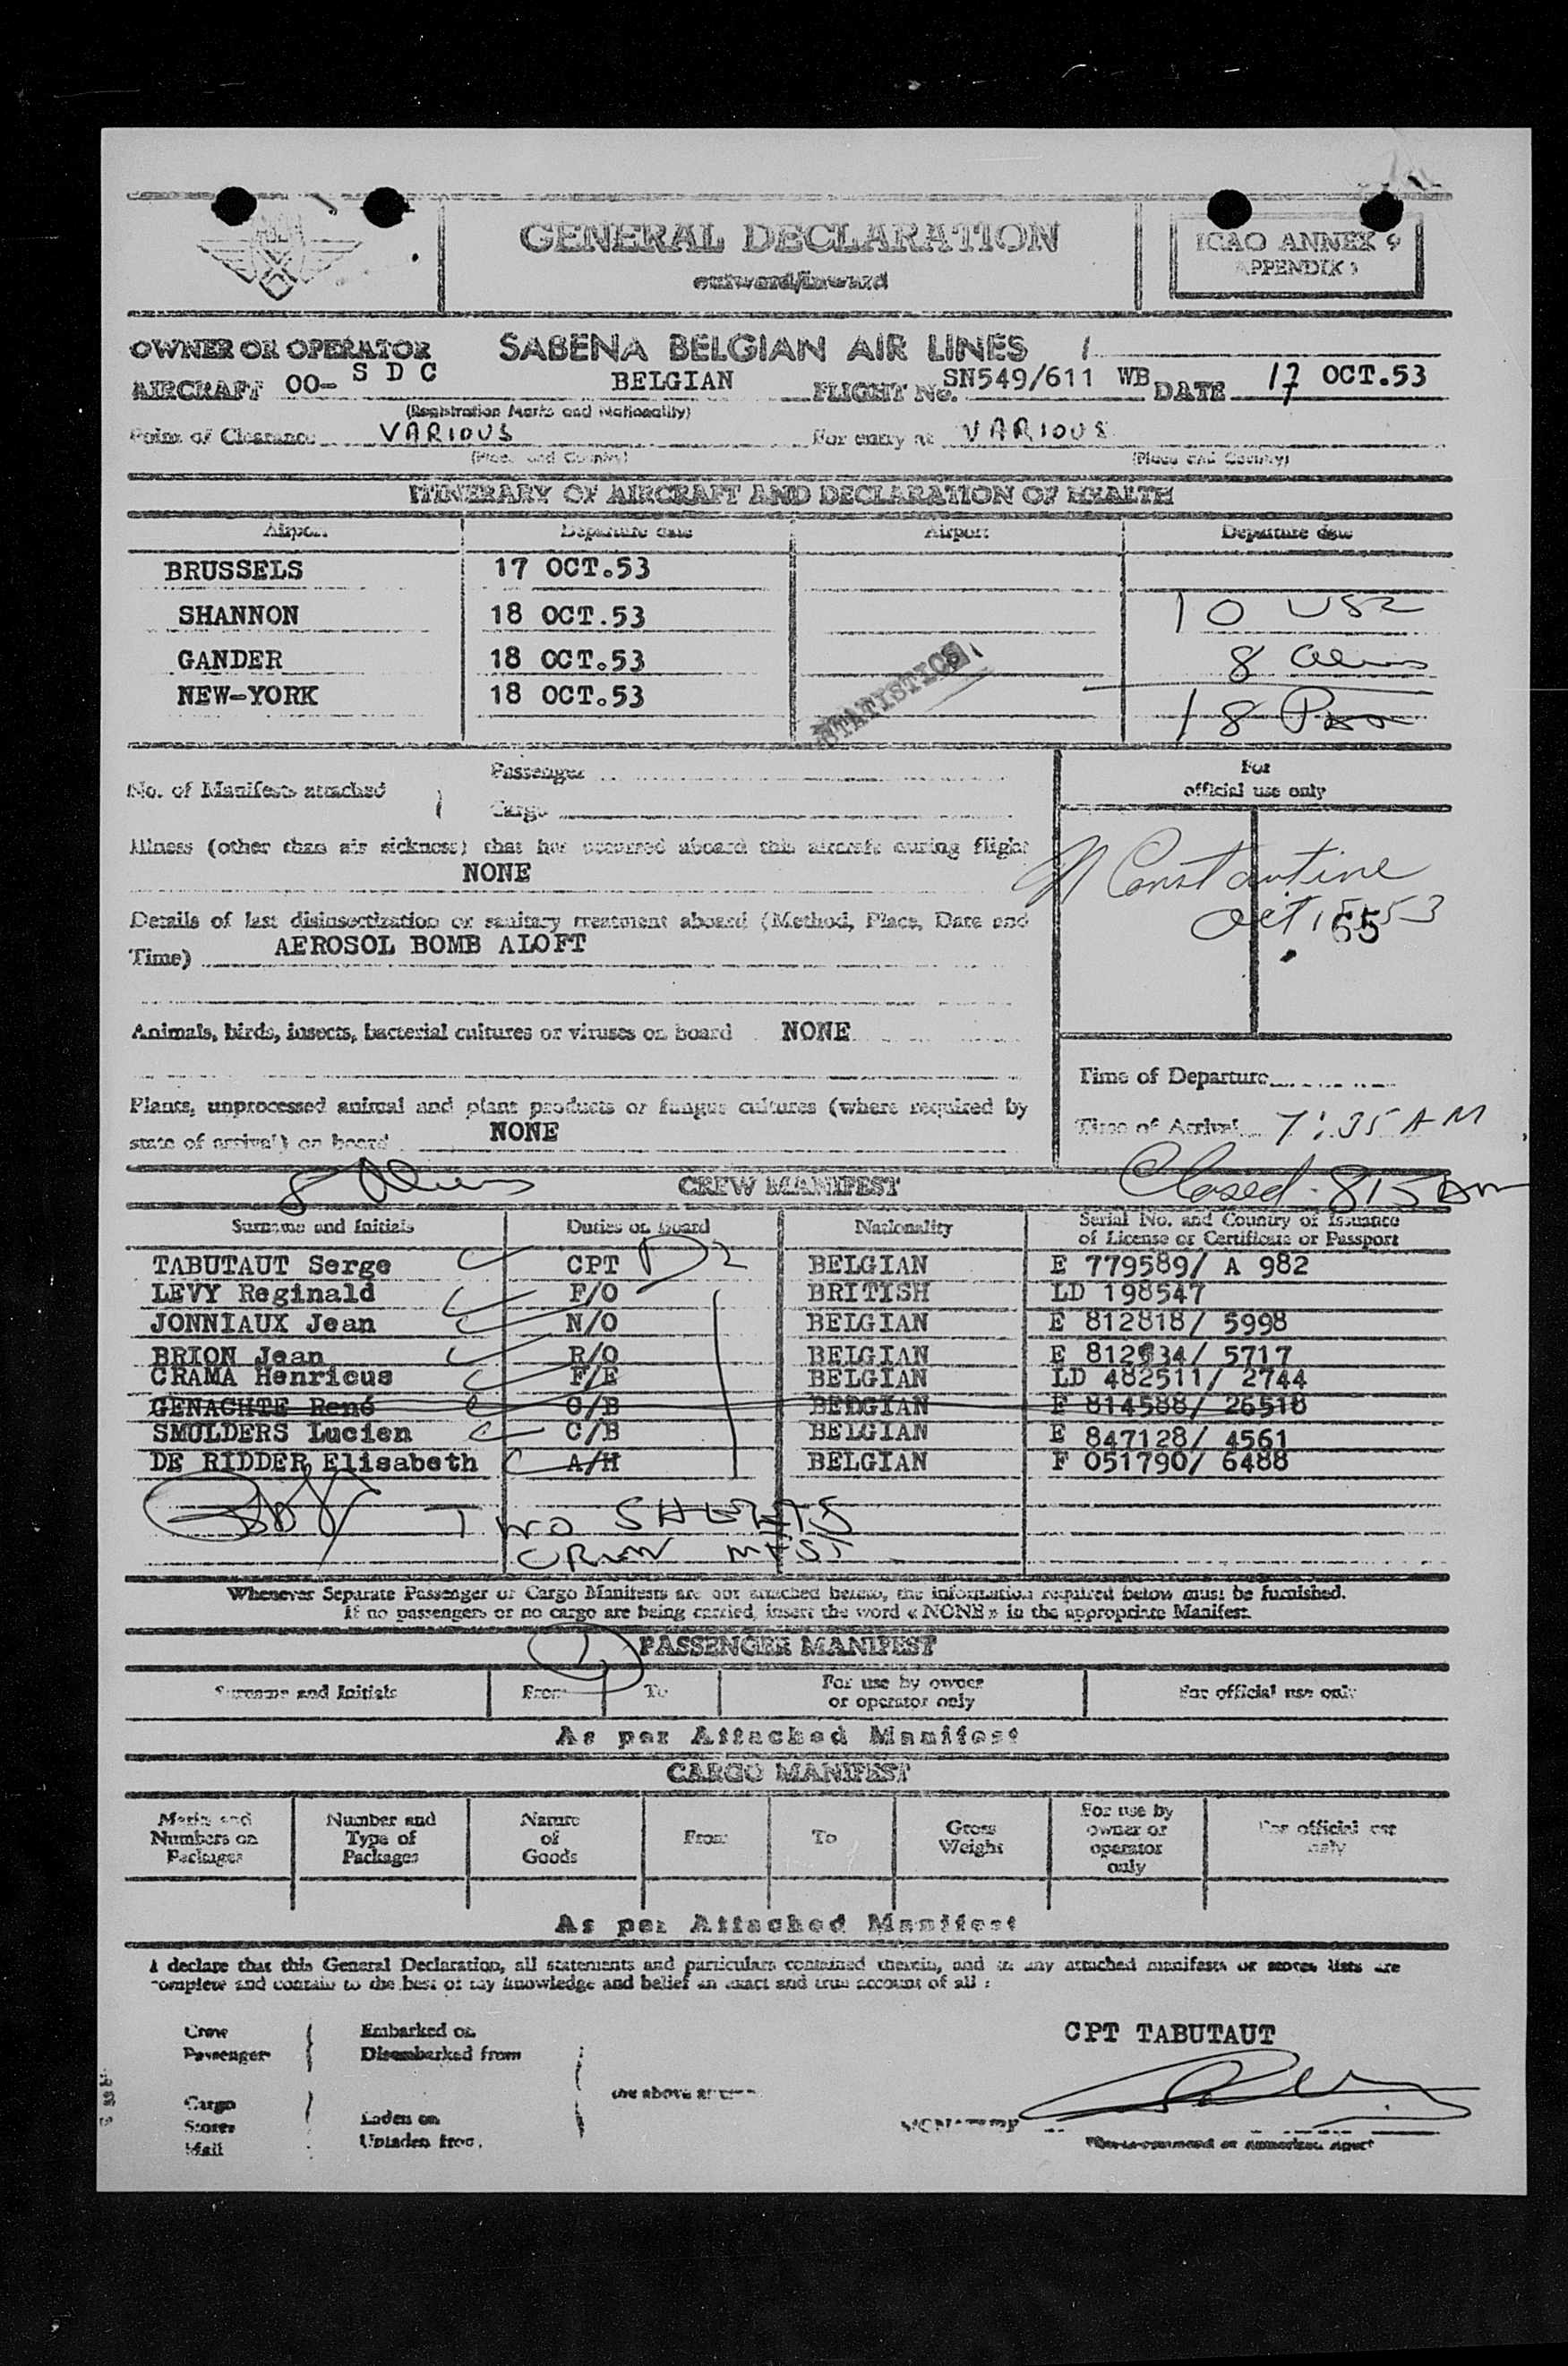 GENERAL DECLARATION
outward/inward
ICAO ANNEX 9
APPENDIX 1
OWNER OR OPERATOR SABENA BELGIAN AIR LINES
AIRCRAFT OO- S D C BELGIAN FLIGHT No. SN549/611 WB DATE 17 OCT.53
(Registration Marks and Nationality)
Point of Clearance VARIOUS For entry at VARIOUS
(Place and Country) (Place and Country)
ITINERARY OF AIRCRAFT AND DECLARATION OF HEALTH
Airport Departure date Airport Departure date
BRUSSELS 17 OCT.53
SHANNON 18 OCT.53 10 USC
GANDER 18 OCT.53 8 Aliens
NEW-YORK 18 OCT.53 18
STATISTICS
No. of Manifests attached
Passenger
Cargo
For
official use only
Illness (other than air sickness) that has occurred aboard this aircraft during flight
NONE
N Constantine
Oct 53
65
Details of last disinsectization or sanitary treatment aboard (Method, Place, Date and
Time) AEROSOL BOMB ALOFT
Animals, birds, insects, bacterial cultures or viruses on board NONE
Time of Departure
Plants, unprocessed animal and plant products or fungus cultures (where required by
state of arrival) on board NONE
Time of Arrival 7:35 AM
Closed 815 Am
8 Aliens
CREW MANIFEST
Surname and Initials Duties on board Nationality Serial No. and Country of Issuance
of License or Certificate or Passport
TABUTAUT Serge CPT D2 BELGIAN E 779589/ A 982
LEVY Reginald F/O BRITISH LD 198547
JONNIAUX Jean N/O BELGIAN E 812818/ 5998
BRION Jean R/O BELGIAN E 812934/ 5717
CRAMA Henricus F/E BELGIAN LD 482511/ 2744
GENACHTE René C/B BELGIAN F 814588/ 26518
SMULDERS Lucien C/B BELGIAN E 847128/ 4561
DE RIDDER Elisabeth A/H BELGIAN F 051790/ 6488
TWO SHEETS
CREW MFST
Whenever Separate Passenger or Cargo Manifests are not attached hereto, the information required below must be furnished.
If no passengers or no cargo are being carried, insert the word « NONE » in the appropriate Manifest.
1
PASSENGER MANIFEST
Surname and Initials From To For use by owner
or operator only For official use only
As per Attached Manifest
CARGO MANIFEST
Marks and
Numbers on
Packages
Number and
Type of
Packages
Nature
of
Goods
From
To
Gross
Weight
For use by
owner or
operator
only
For official use
only
As per Attached Manifest
I declare that this General Declaration, all statements and particulars contained therein, and in any attached manifests or stores lists are
complete and contain to the best of my knowledge and belief an exact and true account of all :
Crew
Passenger
Embarked on
Disembarked from
Cargo
Stores
Mail
Laden on
Unladen from
the above aircraft
CPT TABUTAUT
SIGNATURE
Pilot-in-command or Authorized Agent